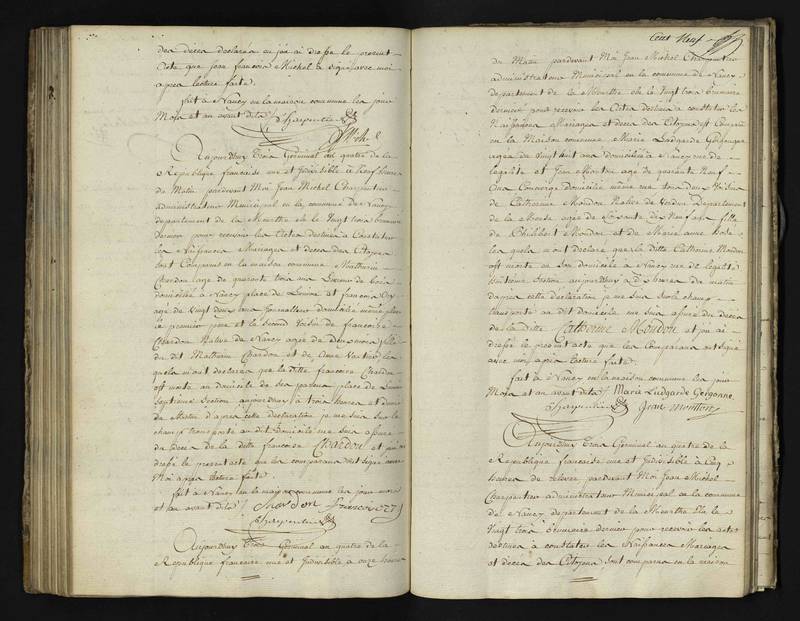 des décès declares en jai dressé le present
acte que jean francois Michel à signé avec moi
apres lecture faite.
fait à Nancy en la maison commune les jour
Mois et an avant dits
Charpentier
Aujourdhuy trois Germinal an quatre de la
Republique francaise une et Indivisible à neuf heures
de Matin pardevant Moi Jean Michel Charpentier
administrateur Municipal en la commune de Nancy
departement de la Meurthe elu le Vingt trois brumaire
dernier pour recevoir les Actes destinés à Constater
les Naissances Mariages et deces des Citoyens
sont Comparus en la maison commune Mathurin
Chardon agé de quarante trois ans
domicilié à Nancy place de et francois
agé de Vingt deux ans Journalier domicilié même place
le premier pere et le Second Voisin de francoise
Chardon Native de Nancy agée de deux mois fille
du dit Mathurin Chardon et de Anne
quels m'ont declares que la ditte francoise Chardon
est morte au domicile de ses parens place de
septieme Section aujourdhuy à trois heures et demie
de Matin d'apres cette declaration je me suis sur le
champ transporté au dit domicile me suis assuré
du deces de la ditte francoise Chardon et jai
dressé le present acte que les comparans ont signé avec
Moi apres lecture faite.
fait à Nancy en la maison commune les jour mois
et an avant dits Chardon francois
Charpentier
Aujourdhuy trois Germinal an quatre de la
Republique francaise une et Indivisible à onze heures
Cent Neuf
du Matin pardevant Moi Jean Michel Charpentier
administrateur Municipal en la commune de Nancy
departement de la Meurthe elu le Vingt trois brumaire
dernier pour recevoir les Actes destines à constater les
Naissances Mariages et deces des Citoyens sont Comparus
en la Maison commune Marie Ludgarde Gergonne
agée de Vingt huit ans domiciliée à Nancy rue de
legalité et Jean Moutton agé de quarante Neuf
ans Concierge domicilié même rue tous deux Voisins
de Catherine Mondon Native de Verdun Departement
de la Meuse agée de Soixante dix Neuf ans fille
de Philibert Mondon et de Marie anne
les quels m'ont declaré que la ditte Catherine Mondon
est morte en son domicile à Nancy rue de legalité
huitieme Section aujourdhuy à dix heures du matin
dapres cette declaration je me suis sur le champ
transporté au dit domicile me suis assuré du deces
de la ditte Catherine Mondon et jai
dressé le present acte que les Comparans ont signé
avec moi apres lecture faite.
fait à Nancy en la maison commune les jour
Mois et an avant dits Marie Ludgarde Gergonne
Charpentier Jean Moutton
Aujourdhuy trois Germinal an quatre de la
Republique francaise une et Indivisible à Cinq
heures de relevée pardevant Moi Jean Michel
Charpentier administrateur Municipal en la commune
de Nancy departement de la Meurthe Elu le
Vingt trois brumaire dernier pour recevoir les actes
destinés à constater les Naissances Mariages
et deces des Citoyens sont comparus en la maison